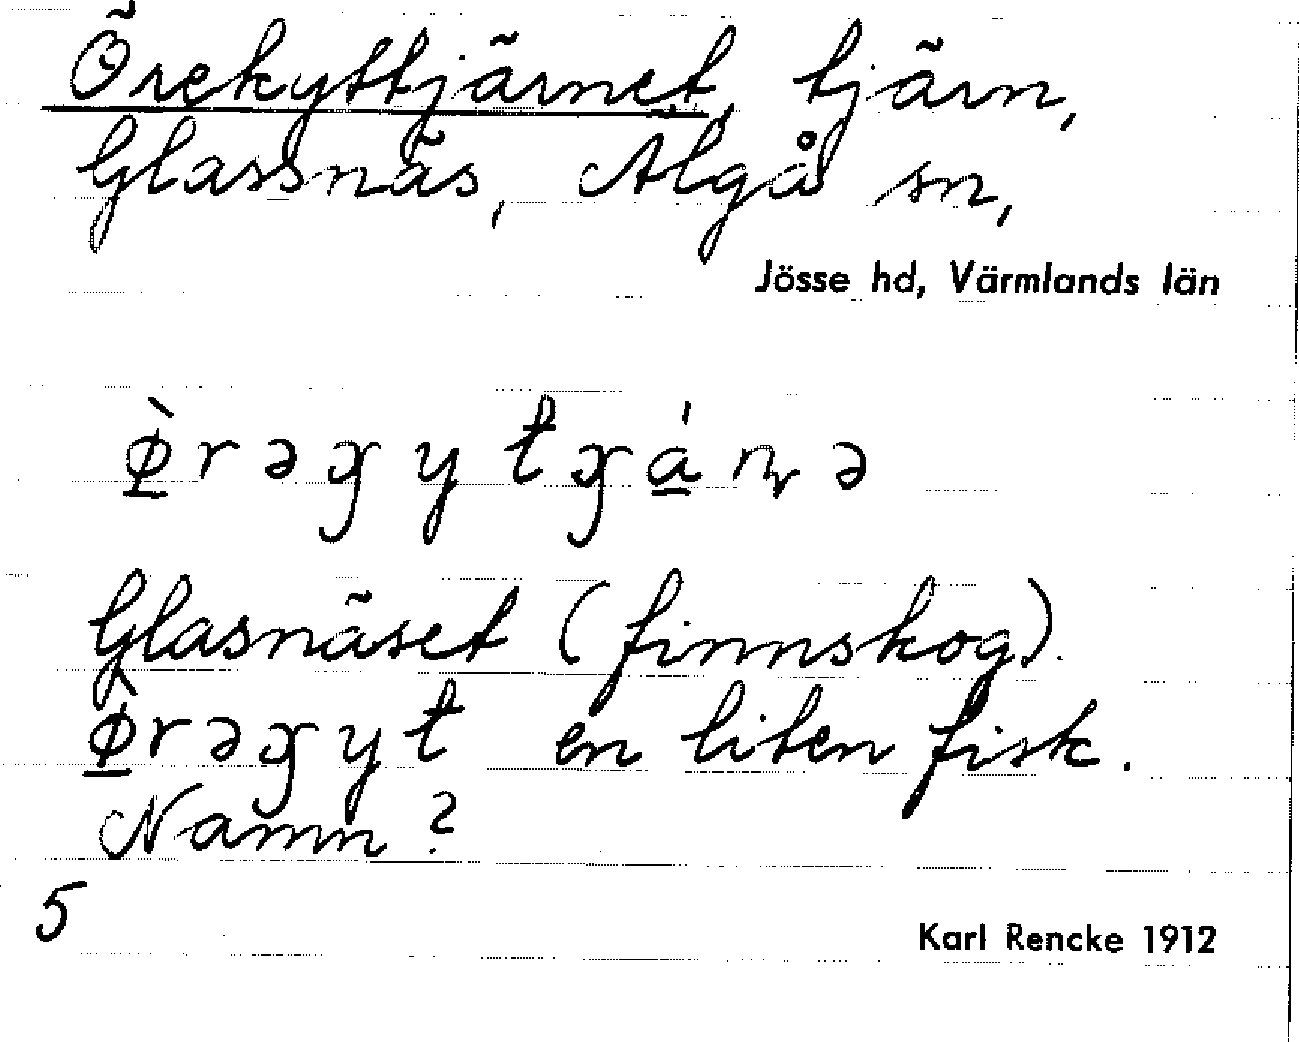 Örekyttjärnet, tjärn,
Glassnäs, Älgå sn,
Jösse hd, Värmlands län
ø̀rəgytgáṇə
Glasnäset (finnskog).
ø̀rəgyt en liten fisk.
Namn?
5
Karl Rencke 1912